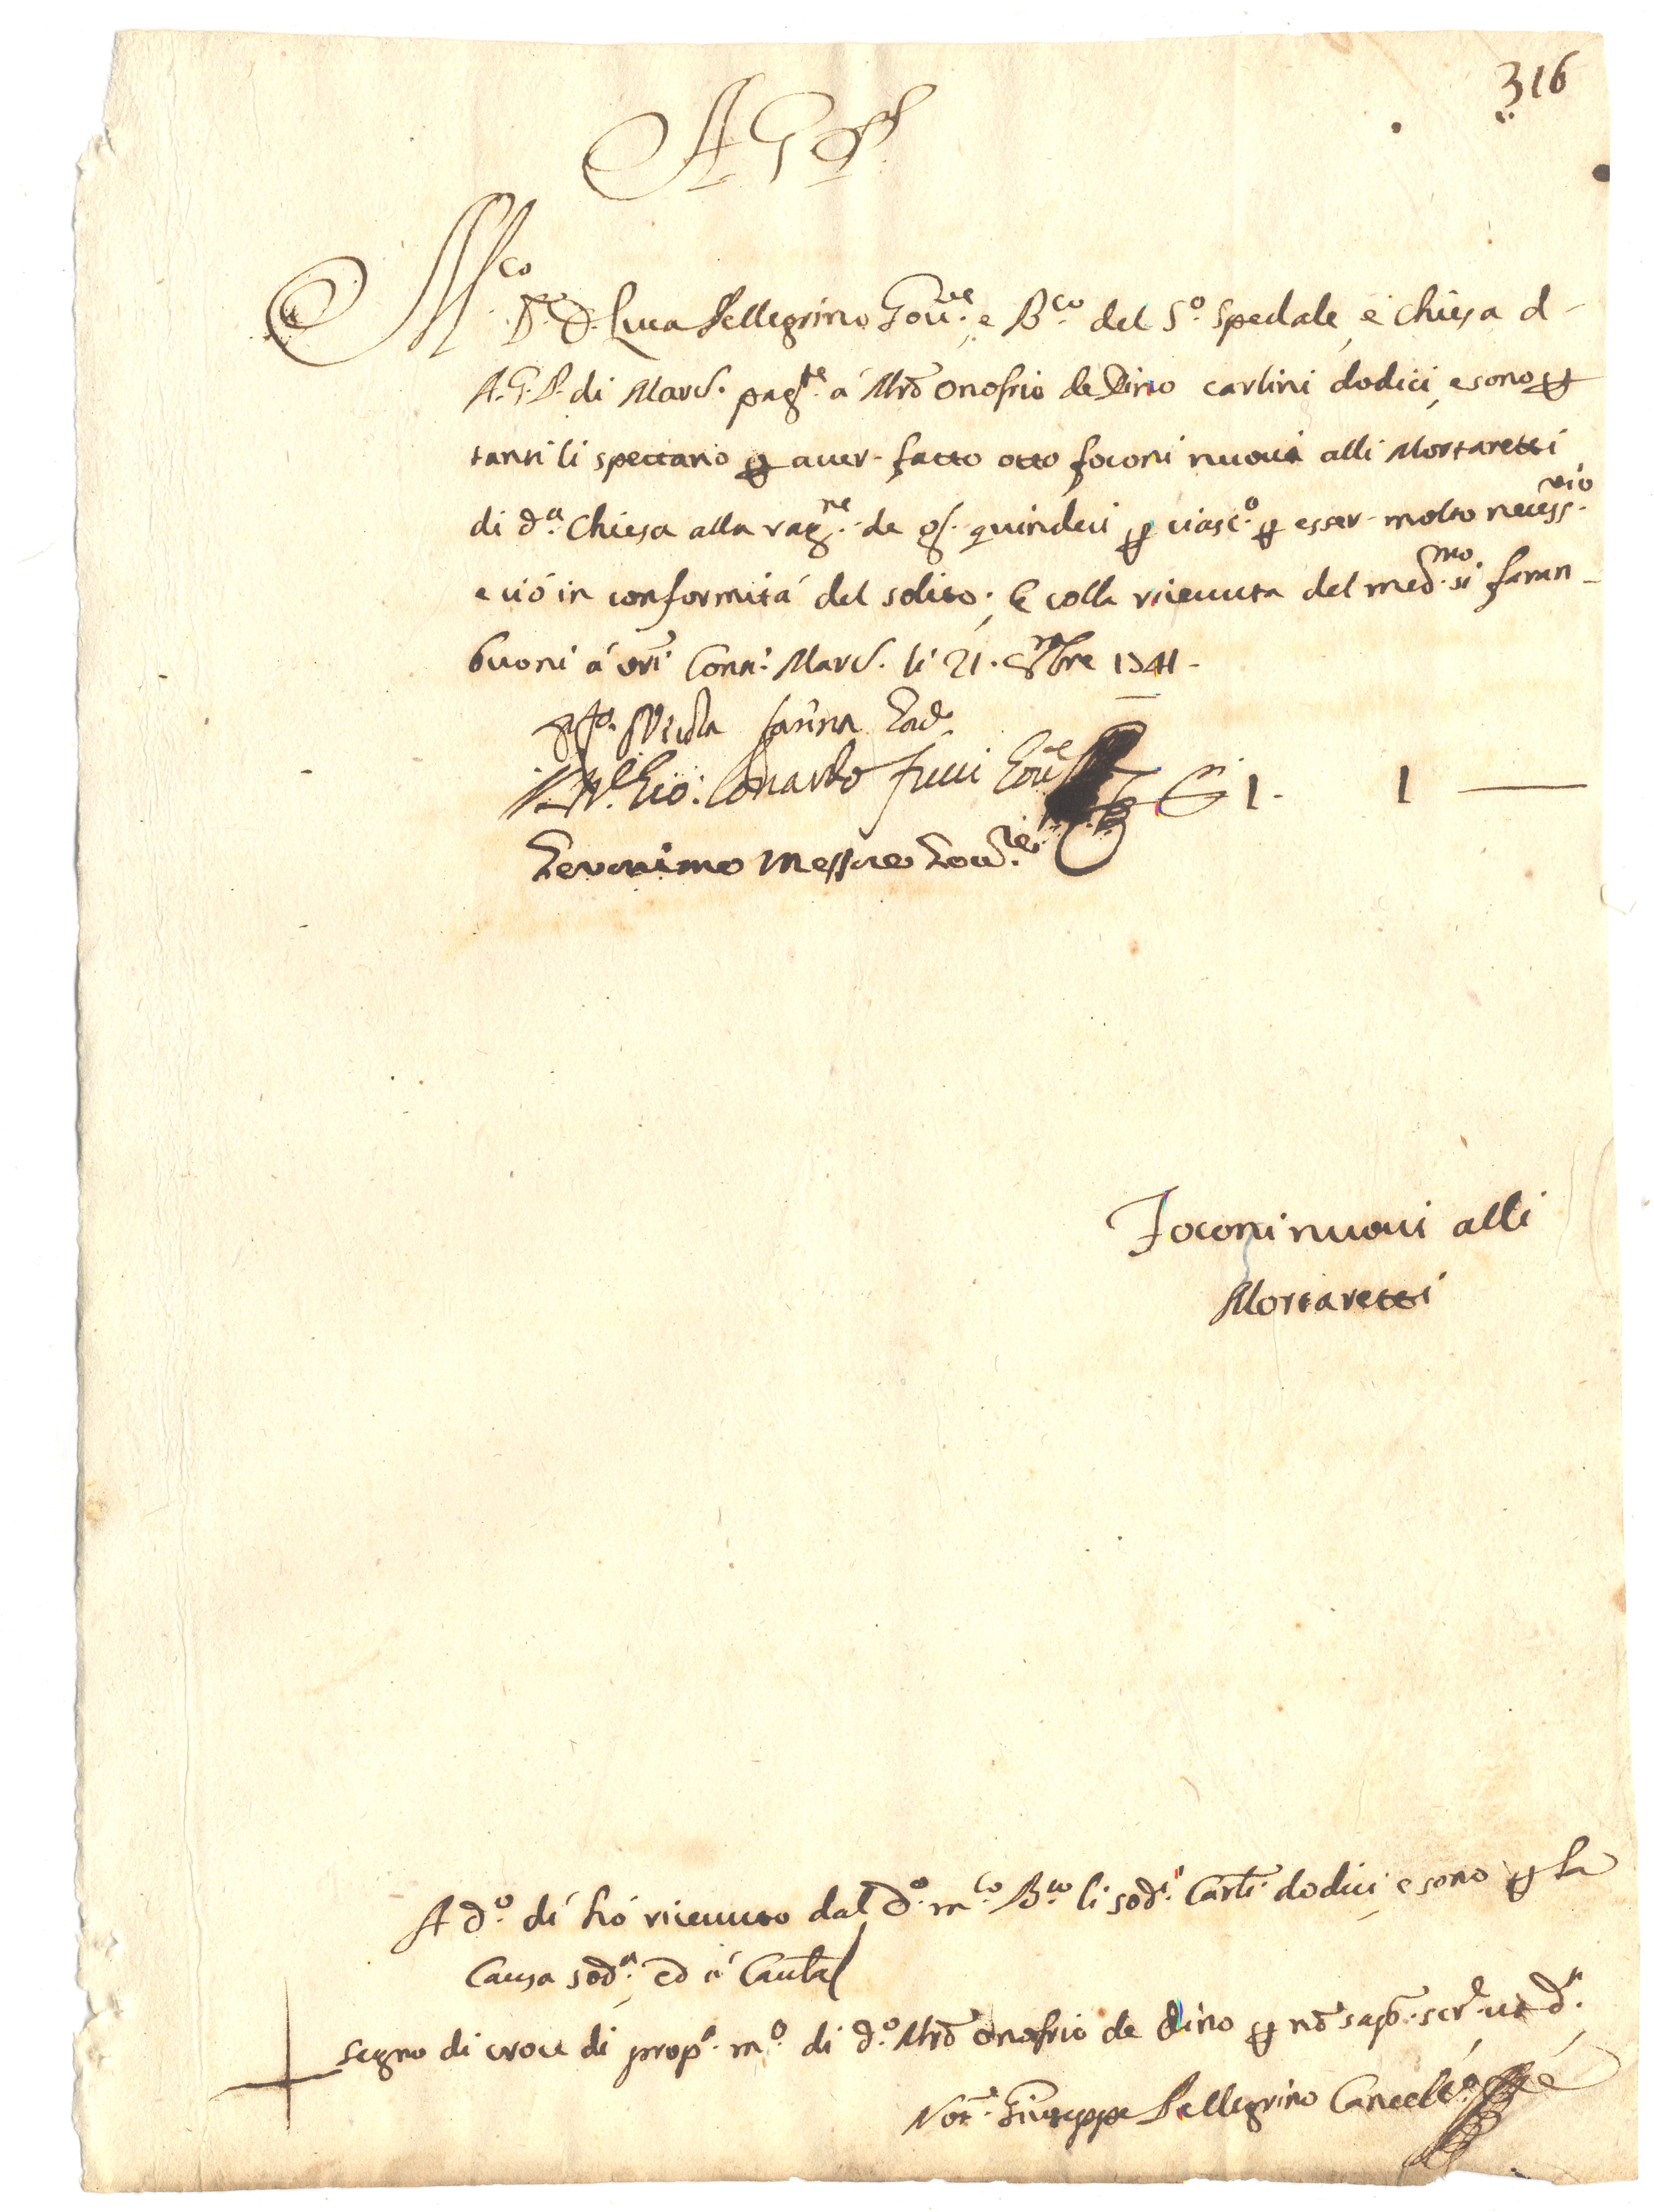 316
A G P
M.co Dr. D. Luca Pellegrino Gov.re e B.co del S.o Spedale, e Chiesa d-
A. G. P. di Marc. pag.te á Mrõ Onofrio de Dino carlini dodici, e sono p
tanti li spettano p aver fatto otto foconi nuovi alli Mortaretti
di d.a Chiesa alla rag.ne de g. quindeci p ciasc.o p esser molto necess.rio
e ció in conformitá del solito; E colla ricevuta del med.mo si faran-
buoni á vr̃i Conti Marc. li 21. 1741-
Farina Gov.
Gio: Lonardo Fucci Gov.re 1. 1 —
Geronimo Messere Gov.re
Foconi nuovi alli
Mortaretti
A d.o dí hó ricevuto dal d.o m.co B.co li sod.i Carli. dodici, e sono p la
Causa sod.a, ed á Cautela
segno di croce di prop.a m.o di d.o Mrõ Onofrio de Dino p nõ sap. scr. ut d.a
Not. Giuseppe Pellegrino Cancell.e